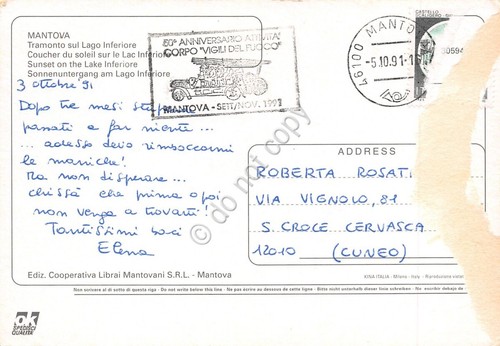 MANTOVA
Tramonto sul Lago Inferiore
Coucher du soleil sur le Lac Inférieur
Sunset on the Lake Inferiore
Sonnenuntergang am Lago Inferiore
50° ANNIVERSARIO ATTIVITA'
CORPO "VIGILI DEL FUOCO"
MANTOVA - SETT/NOV. 1991
46100 MANTOV
-5.10.91-1
3 ottobre 91
Dopo tre mesi
passati a far niente...
... adesso devo rimboccarmi
le maniche!
Ma non disperare...
chissà che prima o poi
non venga a trovarti!
Tantissimi baci
Elena
ADDRESS
ROBERTA ROSATI
VIA VIGNOLO, 81
S. CROCE CERVASCA
12010 (CUNEO)
do not copy
Ediz. Cooperativa Librai Mantovani S.R.L. - Mantova
Non scrivere al di sotto di questa riga - Do not write below this line - Ne pas écrire au dessous de cette ligne - Bitte nicht unterhalb dieser linie schreiben - No escribir debajo de
ok
SPEDISCI
QUALITÀ